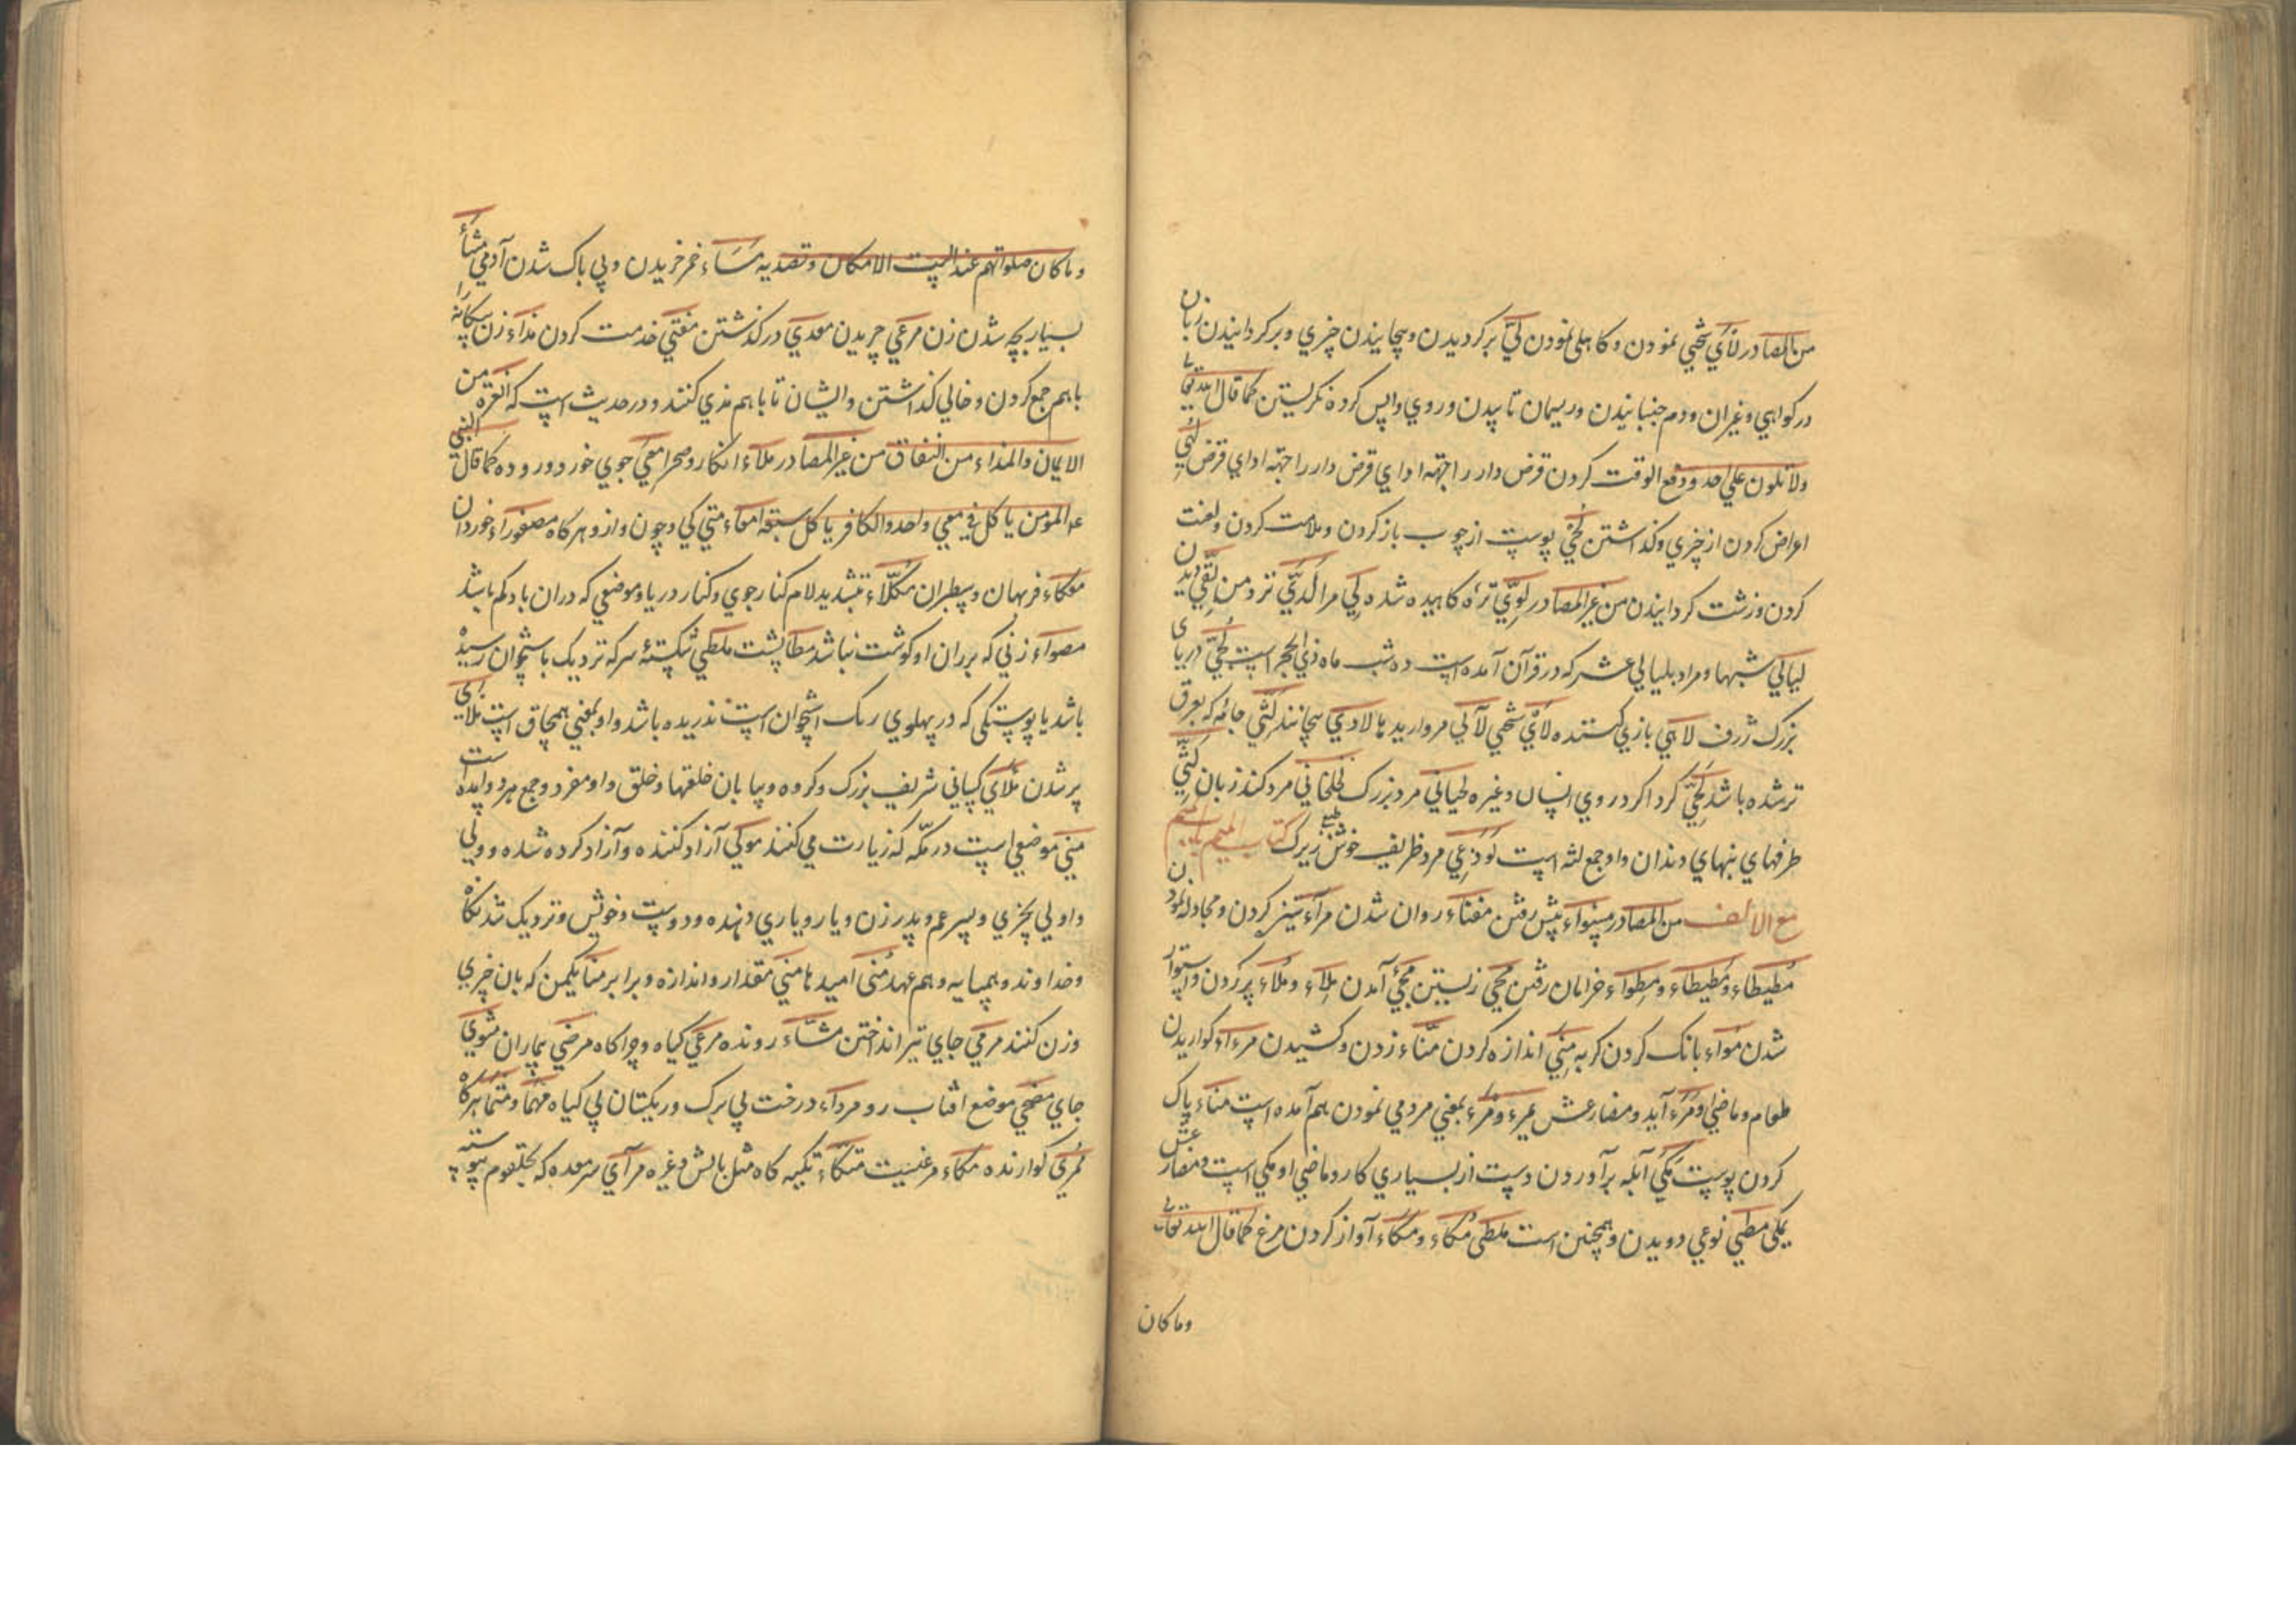 من المصادر لأي سختي نمودن و کاهلی نمودن لیّ برکردیدن و پیچانیدن چیزي و برکردانیدن زبان
در کواهي و غیران و دم جنبانیدن و ریسمان تابیدن و روي واپس کرده نکریستن کما قال الله تعالی
ولا تلون علی احد و دفع الوقت کردن قرض دار را جهة اداي قرض دار را جهة اداي قرض لهي
اعراض کردن از چیزي و کذاشتن لحي پوست از چوب باز کردن و ملامت کردن و لعنت
کردن و زشت کردانیدن من غیر المصادر لويّ تره کاهیده شده لکي مرا لديّ نزد من لقي دیدن
لیالي شبها و مراد بلیالي عشر که در قرآن آمده است ده شب ماه ذي الحجر است لجيّ دریای
بزرک ژرف لاهي بازي کننده لأي سختي لآلي مروارید ها لاوي پیچانند لثي جامه که بعرق
تر شده باشد لحيّ کرداکرد روي انسان و غیره لحیاني مرد بزرک لخلخاني مرد کند زبان لثي
طرفهاي بنهاي دندان و او جمع لثه است لوذعي مرد ظریف خوش طبع زیرک کتاب المیم
مع الالف من المصادر مینواء پیش رفتن مفناء روان شدن مراء ستیز کردن و مجادله نمودن
مطیطاء و مطیطاء و مطواء خرامان رفتن محي زیستن مجئ آمدن ملاء و ملاء پر کردن و استوار
شدن مواء بانک کردن کربه مني اندازه کردن متاء زدن و کشیدن مرءاء کواریدن
طعام و ماضي او مرء آید و مضارعش یمرء و مرء بمعني مردمي نمودن هم آمده است مناء پاک
کردن پوست مکي آبله برآوردن دست از بسیاري کار و ماضي او مکي است و مضارعش
یمکی مطي نوعي دویدن و همچنین است ملطي مکاء و مکاء آواز کردن مرغ کما قال الله تعالی
و ما کان
و ما کان صلواتهم عند البیت الا مکاء و تصدیه مساء خمر خریدن و بي باک شدن آدمي مشاء
بسیار بچه شدن زن مرعي چریدن معدي درکذشتن مقتي خدمت کردن مذاء زن بیکانه را
باهم جمع کردن و خالي کذاشتن و ایشان تا باهم مذي کنند و در حدیث است که الغیرة من
الایمان والمذاء من النفاق من غیر المصادر ملاء انکار و صحرا معي جوي خورد و روده کما قال النبي
عم المؤمن یاکل في معي واحد والکافر یاکل سبعة امعاء متي کي و چون و از و هرکاه مصفوراء خوردان
معکاء فربهان و سطبران مکلّاء بتشدید لام کنار جوي و کنار دریا و موضعي که دران باد کم باشد
مصواء زني که بر ران او کوشت نباشد مطا پشت ملطي شکستهٔ سر که نزدیک باستخوان رسیده
باشد یا پوستکي که در پهلوي رک استخوان است ندریده باشد و او بمعني سمحاق است ملاي
پر شدن ملاي کساني شریف بزرک و کروه و بیابان خلقها و خلق و او مفرد و جمع هر دو آمده است
مني موضعي است در مکّه که زیارت مي کنند مولي آزاد کننده و آزاد کرده شده و ولي
و اولي بچیزي و پسر عم و پدر زن و یار و یاري دهنده و دوست و خویش و نزدیک شد نکاه
و خداوند و همسایه و هم عهد منی امید ها مني مقدار و اندازه و برابر منا یکمن که بان چیزي
وزن کنند مرمي جاي تیر انداختن مشّاء رونده مرعي کیاه و چراکاه مرضي بیماران مثوي
جاي مضحي موضع افتاب رو مرداء درخت بي برک و ریکستان بي کیاه مهما و متما هرکاه
مري کوارنده مکاء مرغیست متکّاء تکیه کاه مثل بالش و غیره مرآي سر معده که بحلقوم پیوسته